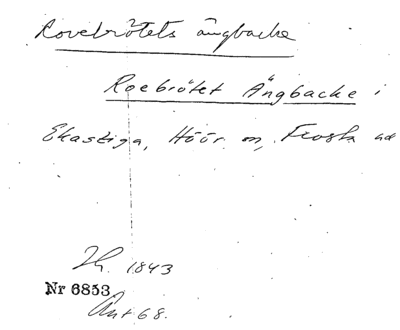 Rovebrötets ängbacke
Roebrötet Ängbacke i
Ekastiga, Höör sn, Frosta hd
Th. 1843
Nr 6853
Ant 68.